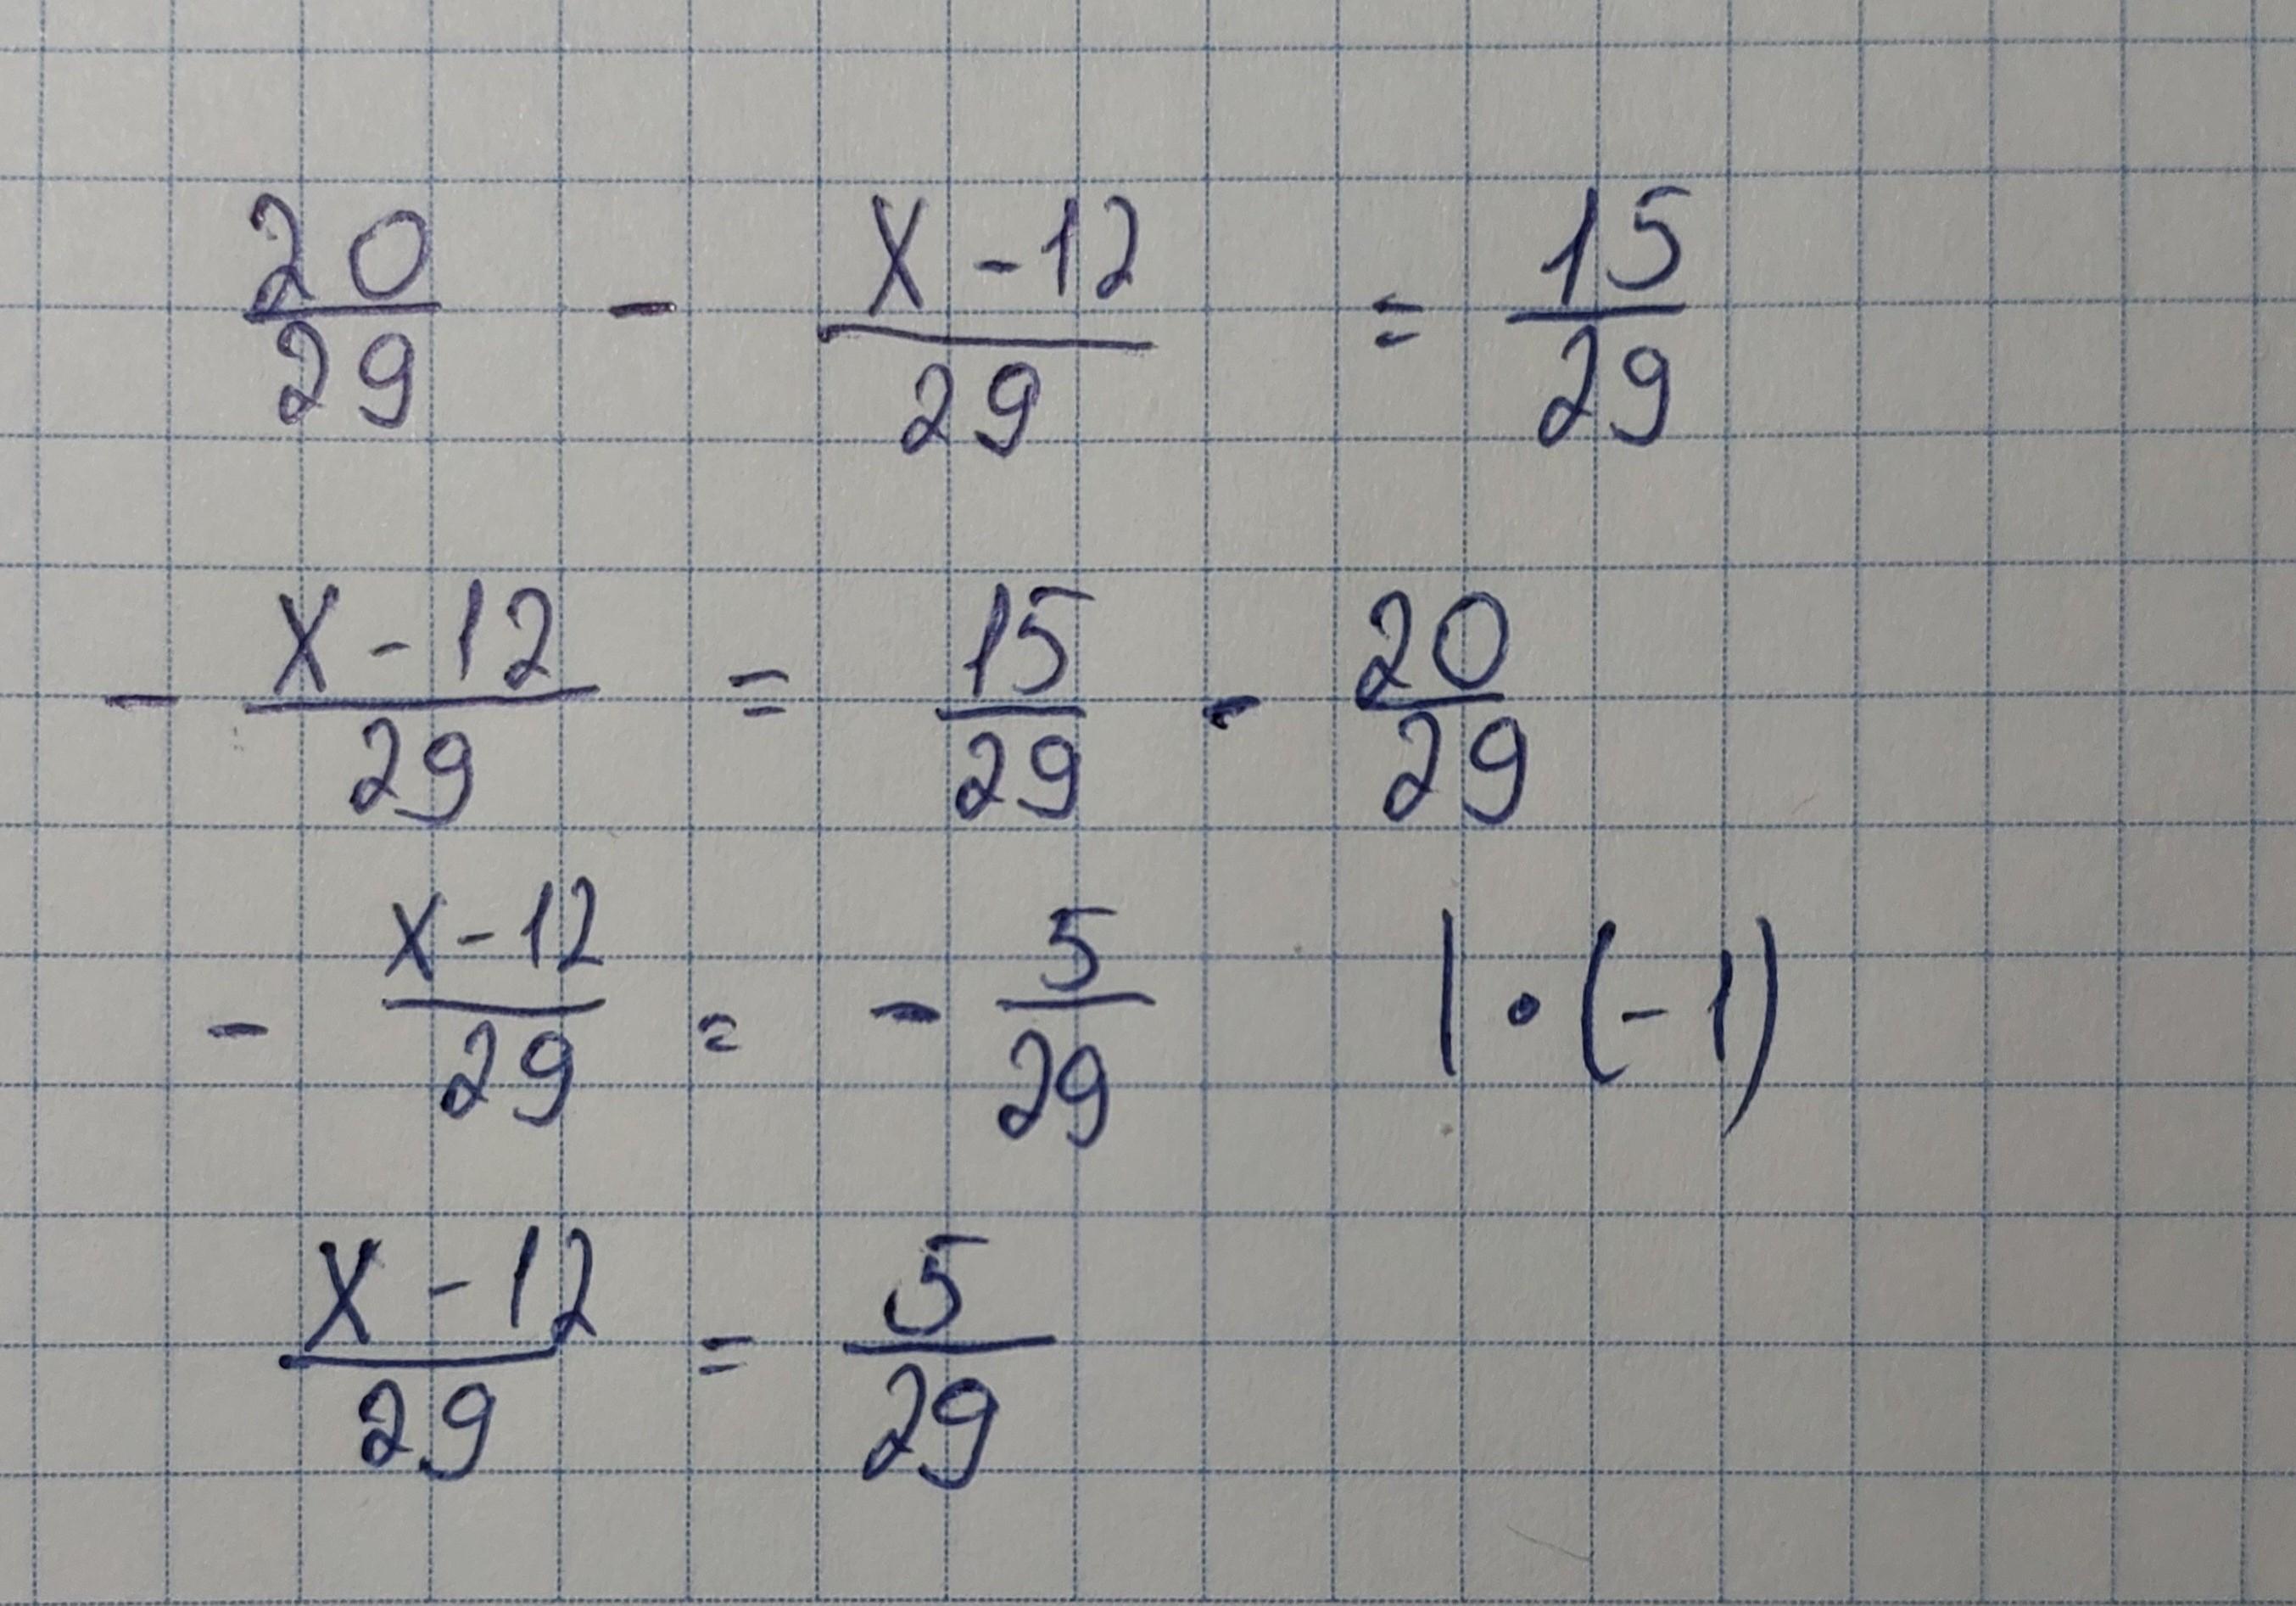 20/29 - x-12/29 = 15/29
- x-12/29 = 15/29 - 20/29
- x-12/29 = - 5/29 | · (-1)
x-12/29 = 5/29